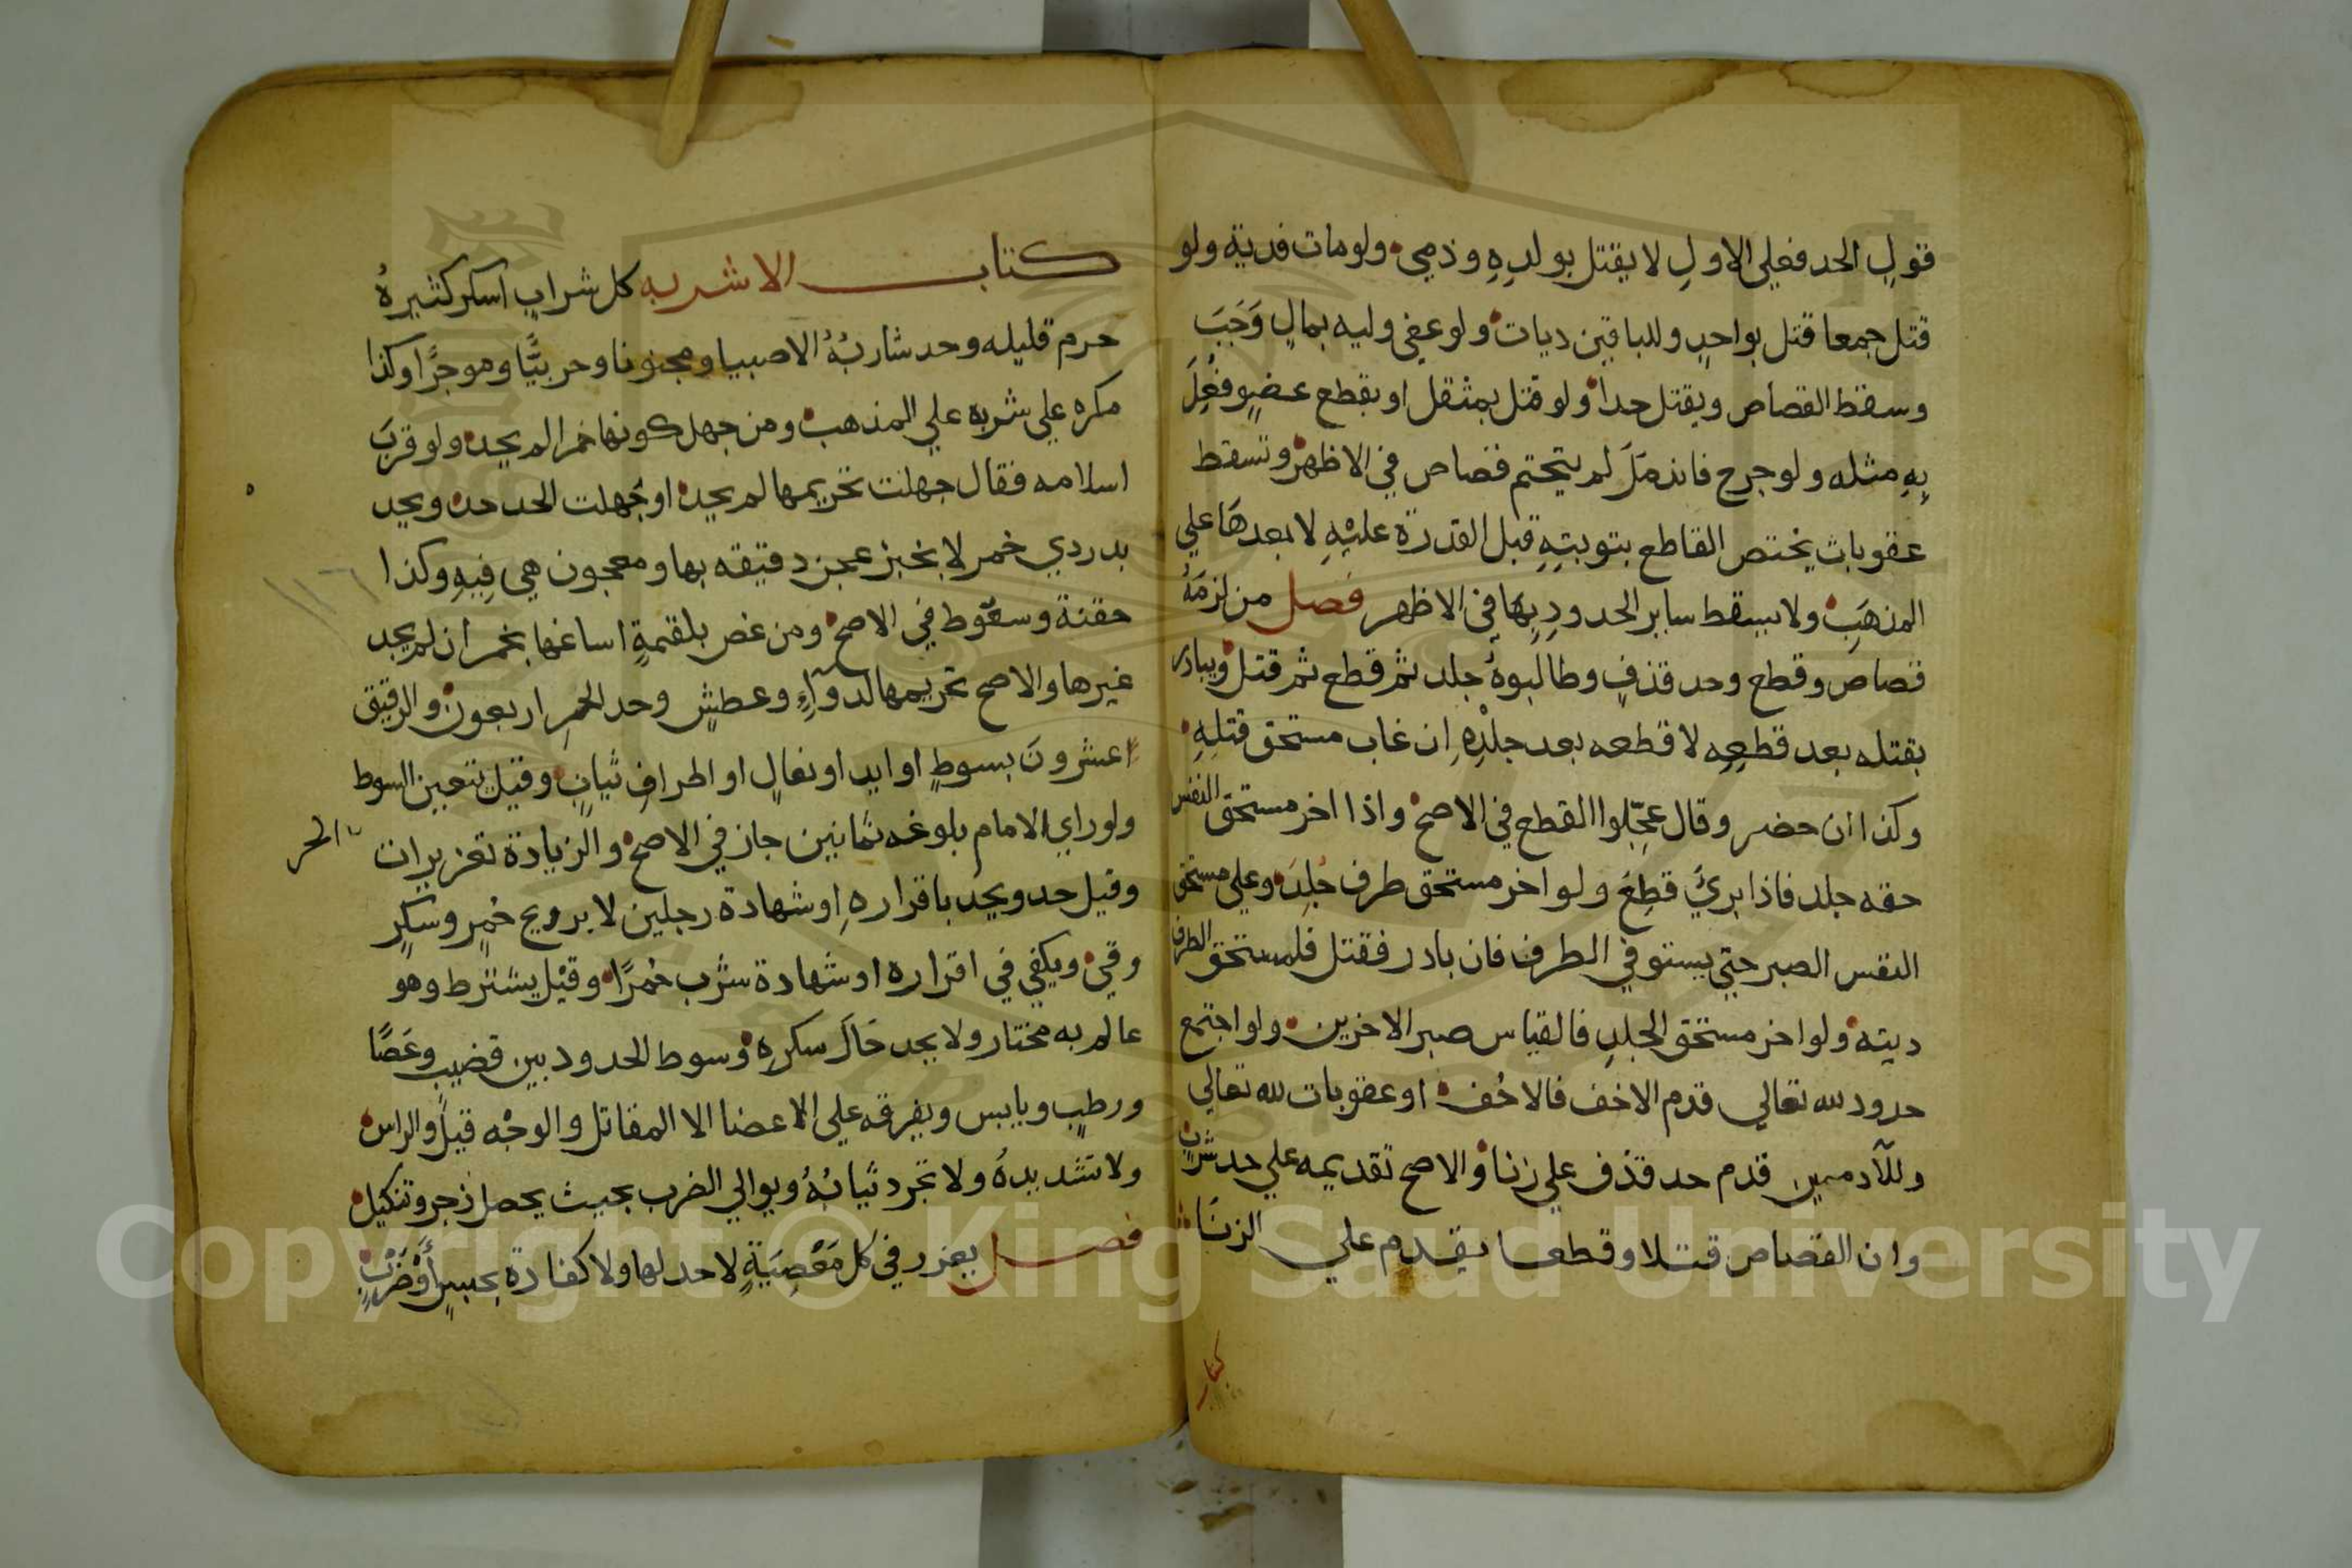 قول الحد فعلي الاولِ لا يقتل بولدِهِ وذمي ولو مات فدية ولو
قتل جمعا قتل بواحدٍ وللباقين ديات ولو عفي وليه بمالٍ وَجَبَ
وسقط القصاص ويقتل حدا ولو قتل بمثقل او بقطع عضوٍ فُعِلَ
بِهِ مثله ولو جرح فاندمَلَ لم يتحتم قصاص في الاظهر وتسقط
عقوبات يختص القاطع بتوبتِهِ قبل القدرة عليْهِ لا بعدهَا علي
المذهَبِ ولا يسقط ساير الحدودِ بِهَا في الاظهر فصل من لزمَهُ
قصاص وقطع وحد قذفٍ وطالبوهُ جلد ثم قطع ثم قتل ويبادر
بقتله بعد قطعِهِ لا قطعه بعد جلْدِهِ اِن غاب مستحق قتلِهِ
وكذا ان حضر وقال عجِّلوا القطع في الاصح واذا اخر مستحق النفس
حقه جلد فاذا بريُ قطِعَ ولو اخر مستحق طرف جُلِدَ وعلي مستحق
النفس الصبر حتي يستوفي الطرف فان بادر فقتل فلمستحق الطرف
ديته ولو اخر مستحق الجلدِ فالقياس صبر الاخرين ولو اجتمع
حدود لله تعالي قدم الاخف فالاخُف او عقوبات لله تعالي
وللآدميين قدم حد قذف علي زنا والاصح تقديمه علي حد شربٍ
وان القصاص قتلا وقطعا يقدم علي الزنَا
كتاب
كتاب الاشربه كل شرابٍ اسكر كثيرهُ
حرم قليله وحد شاربُهُ الا صبيا ومجنونا وحربيًّا وموجرًا وكذا
مكره علي شربه علي المذهب ومن جهل كونها خمرا لم يحد ولو قربَ
اسلامه فقال جهلت تحريمها لم يحد او جهلت الحد حد ويحد
بدردي خمر لا بخبز عجن دقيقه بها ومعجون هي فِيهِ وكذا
حقنة وسعُوط في الاصح ومن غص بلقمةٍ اساغها بخمر ان لم يجد
غيرها والاصح تحريمها لدوآءٍ وعطشٍ وحد الخمرِ اربعون والرقيق
عشرونَ بسوطٍ او ايد او نعالٍ او اطرافِ ثيابٍ وقيل يتعين السوط
ولو راي الامام بلوغه ثمانين جاز في الاصح والزيادة تعزيرات
الحر
وقيل حد ويحد باقرارهِ او شهادة رجلين لا بريح خمرٍ وسكرٍ
وقي ويكفي في اقراره او شهادة شرب خمرًا وقيل يشترط وهو
عالم به مختار ولا يحد حَالَ سكرِهِ وسوط الحدود بين قضيبٍ وعَصًا
ورطبٍ ويابس ويفرقه علي الاعضا الا المقاتل والوجْه قيل والراس
ولا تشد يدهُ ولا تجرد ثيابُهُ ويوالي الضرب بحيث يحصل زجر وتنكيل
فصل يعزر في كل مَعْصِيَةٍ لا حد لها ولا كفارة بحبسٍ أَوْ ضَرْبٍ
١١٦